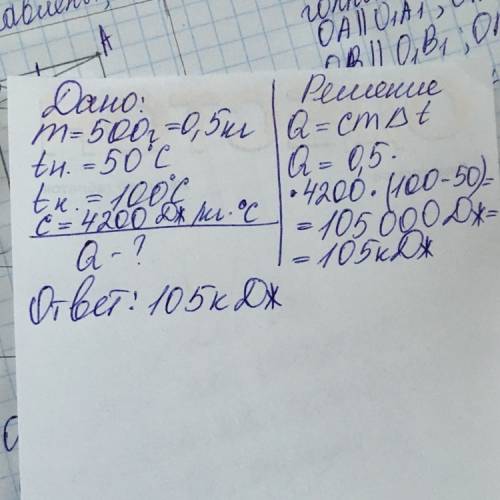 авлено,
A
OA || O₁A₁; O
OB || O₁B₁; O
Дано:
m = 500г = 0,5кг
tн. = 50°C
tк. = 100°C
c = 4200 Дж/кг·°C
Q - ?
Решение
Q = cm∆t
Q = 0,5·
·4200·(100-50)=
= 105 000 Дж=
= 105кДж
Ответ: 105кДж